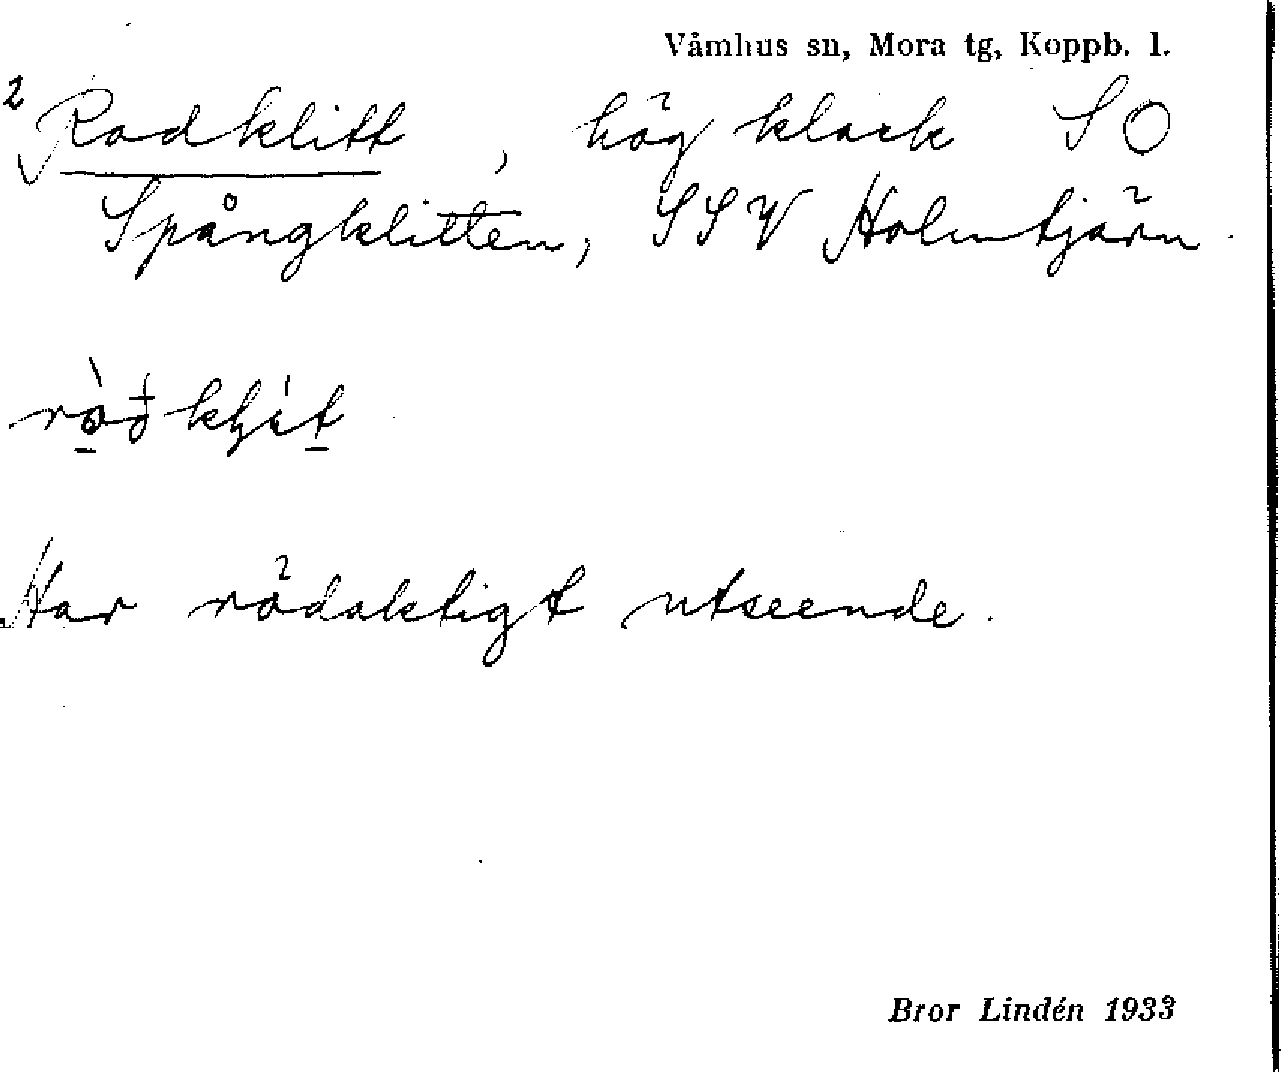 Våmhus sn, Mora tg, Koppb. l.
2 Rodklitt, hög klack SO
Spångklitten, SSV Holmtjärn.
Har rödaktigt utseende.
Bror Lindén 1933